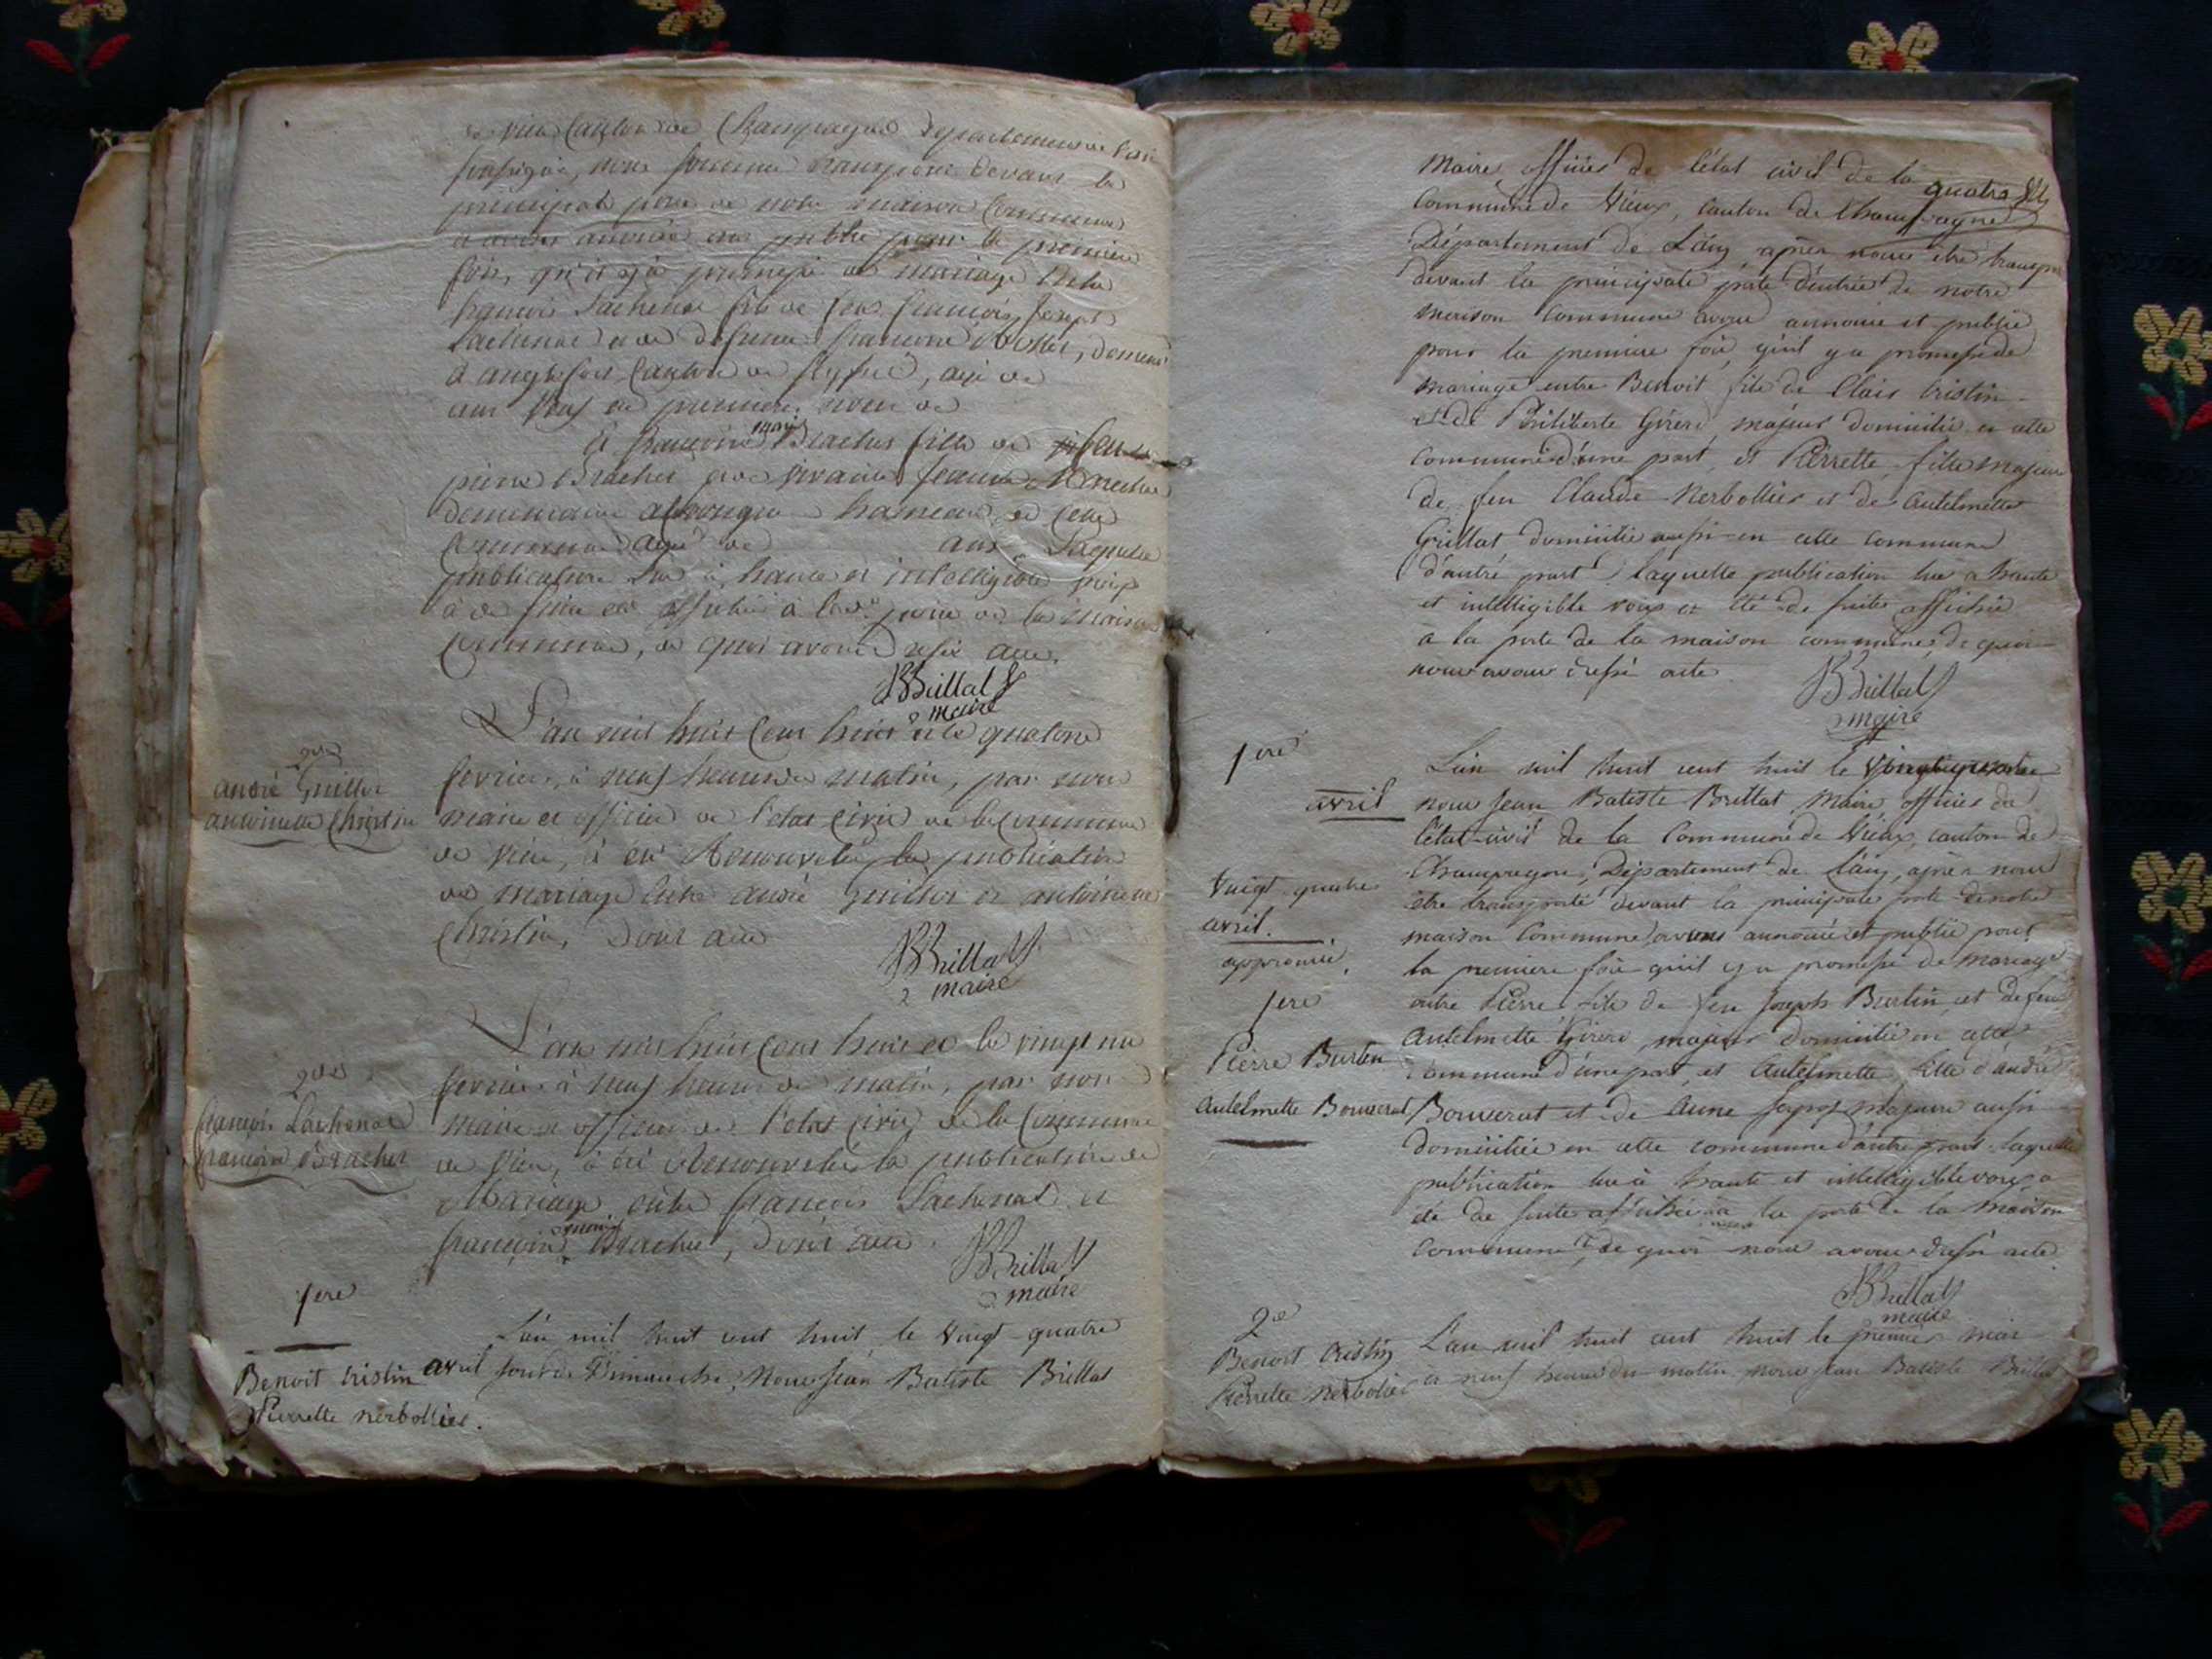 de vieu Canton de Champagne département de l'ain
soussigné, nous sommes transporté devant la
principale porte de notre maison Commune
et avons annoncé et publié pour la première
fois, qu'il y a promesse de mariage entre
françois Lachenal fils de feu françois joseph
Lachenal et de défunte françoise demeurt
a anglefort Canton de seyssel, agé de
d'une
Et françoise marie Brachet fille de feu
pierre Brachet et de vivante jeanne
demeurant hameau de cette
Commune agée de ans Laquelle
publication lue à haute et intelligible voix
à de suite été affichée à la porte de la maison
Commune, de quoi avons dressé acte.
JBBrillat
maire
2de
andré Guillot
antoinette Christin
L'an mil huit Cent huit et le quatorze
fevrier, à neuf heures du matin, par nous
maire et officier de l'état civil de la Commune
de vieu, à été Renouvelée la publication
de mariage entre andré guillot et antoinette
Christin, dont acte
JBBrillat
maire
2de
françois Lachenal
françoise Brachet
L'an mil huit Cent huit et le vingt un
fevrier à neuf heures du matin, par nous
maire et officier de l'état civil de la Commune
de vieu, à été Renouvelée la publication de
Mariage entre françois Lachenal et
françoise marie Brachet, dont acte.
JBBrillat
maire
1ere
Benoit cristin
Pierrette nerbollier.
L'an mil huit cent huit le vingt-quatre
avril jour de Dimanche, Nous Jean Batiste Brillat
Maire officier de l'état civil de la quatre
Commune de Vieux, canton de Champagne
Département de L'ain, après nous être transporté
devant la principale porte d'entrée de notre
maison commune avons annoncé et publié
pour la premiere fois qu'il y a promesse de
mariage entre Benoit fils de Clair Cristin
et de Philiberte Girerd, majeur domicilié en cette
commune d'une part, et Pierrette fille majeure
de feu Claude Nerbollier et de Antelmette
Grillat domiciliée aussi en cette commune
d'autre part, laquelle publication lue a haute
et intelligible voix a été de suite affichée
a la porte de la maison commune, de quoi
nous avons dressé acte
JBBrillat
maire
1ere
avril
Vingt quatre
avril.
approuvé.
1ere
Pierre Burtin
Antelmette Bouverat
L'an mil huit cent huit le vingtquatre
nous Jean Batiste Brillat, Maire officier de
l'état-civil de la Commune de Vieux, canton de
Champagne, Département de L'ain, après nous
être transporté devant la principale porte de notre
maison Commune avons annoncé et publié pour
la premiere fois qu'il y a promesse de mariage
entre Pierre fils de feu Joseph Burtin et de feu
Antelmette Girerd, majeur domicilié en cette
commune d'une part, et Antelmette fille d'andré
Bouverat et de Anne majeure aussi
domiciliée en cette commune d'autre part laquelle
publication lue à haute et intelligible voix a
été de suite affichée à la porte de la maison
commune, de quoi nous avons dressé acte.
JBBrillat
maire
2e
Benoit Cristin
Pierrette nerbolier
L'an mil huit cent huit le premier mai
à neuf heures du matin, nous Jean Batiste Brillat